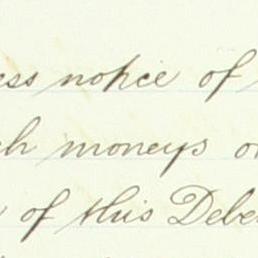 ess notice of
ch moneys o
of this Debe